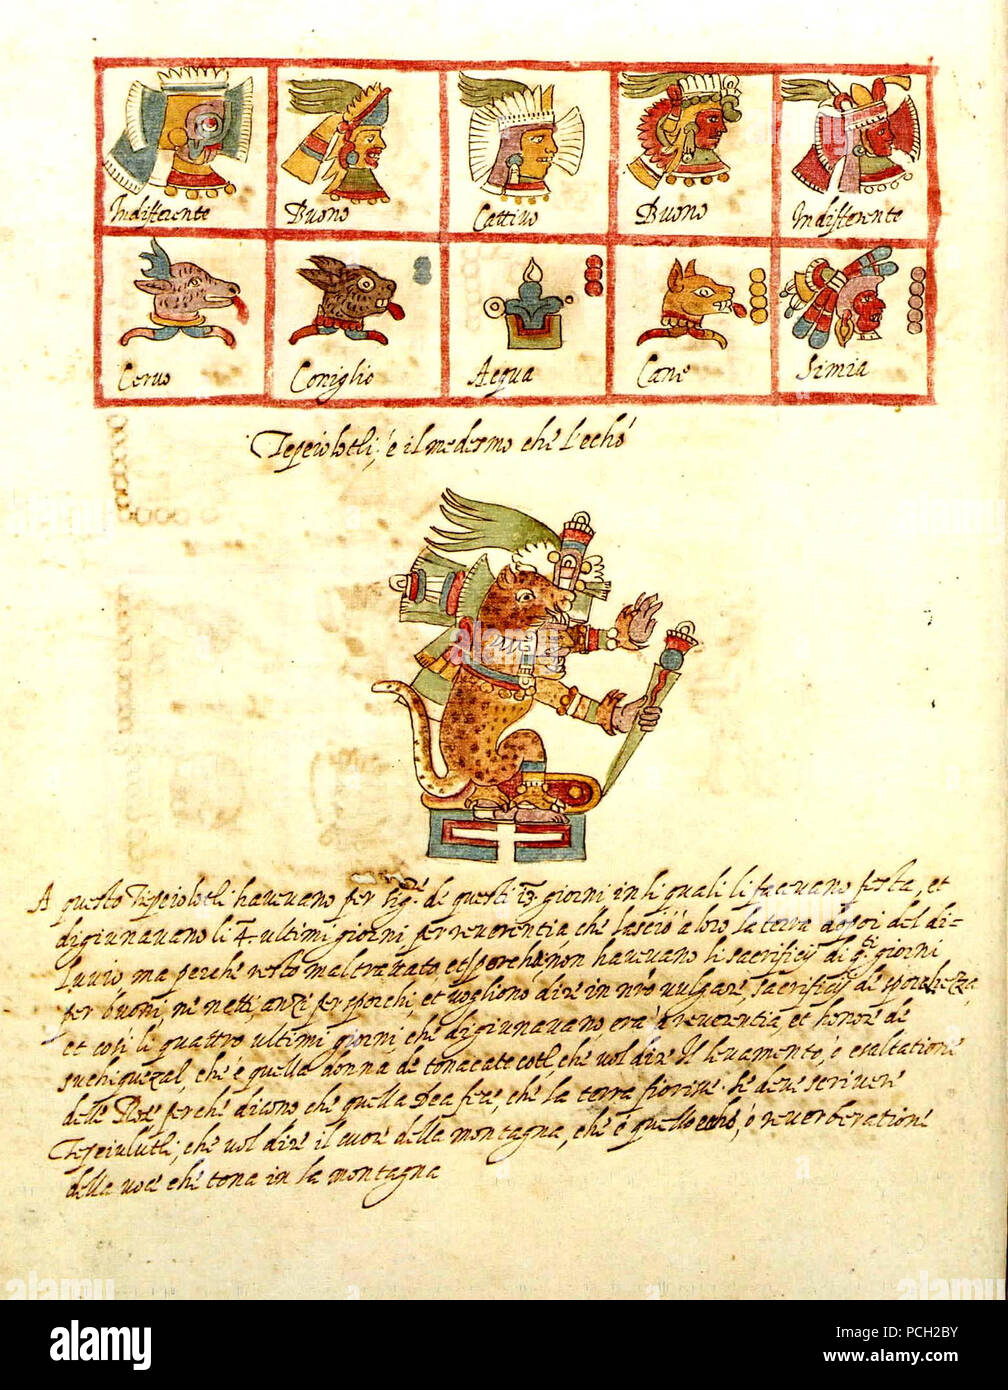 Indifferente Buono Cattivo Buono Indifferente
Cervo Coniglio Acqua Cane Simia
Tepeiolotli; è il medesmo chè l'echò
A questo Tepeiolotli havevano per sig.re de questi 13 giorni in li quali li facevano festa, et
digiunavano li 4. ultimi giorni per reverentia, chè lasciò a loro la terra dopoi del di-
luvio ma perchè resto maltrattata, et sporcha, non havevano li sacrificij di q.ti giorni
per buoni, nè netti, anzi per sporchi, et vogliono dire in nro vulgarè, sacrificij de sporchezza,
et cosi li quattro ultimi giorni, chè digiunavano, era à reverentia, et honorè de
suchiquezal, chè è quella donna de tonacatecotl, chè vol dirè Il levamento, ò exaltationè
dellè Rosè perchè dicono chè quella dea fecè, chè la terra fiorirè. Sè devè scriverè
Tepeiulutli; chè vol dirè il cuorè della montagna, chè è quello echò, ò reverberationè
della vocè chè tona in la montagna
alamy
Image ID: PCH2BY
www.alamy.com